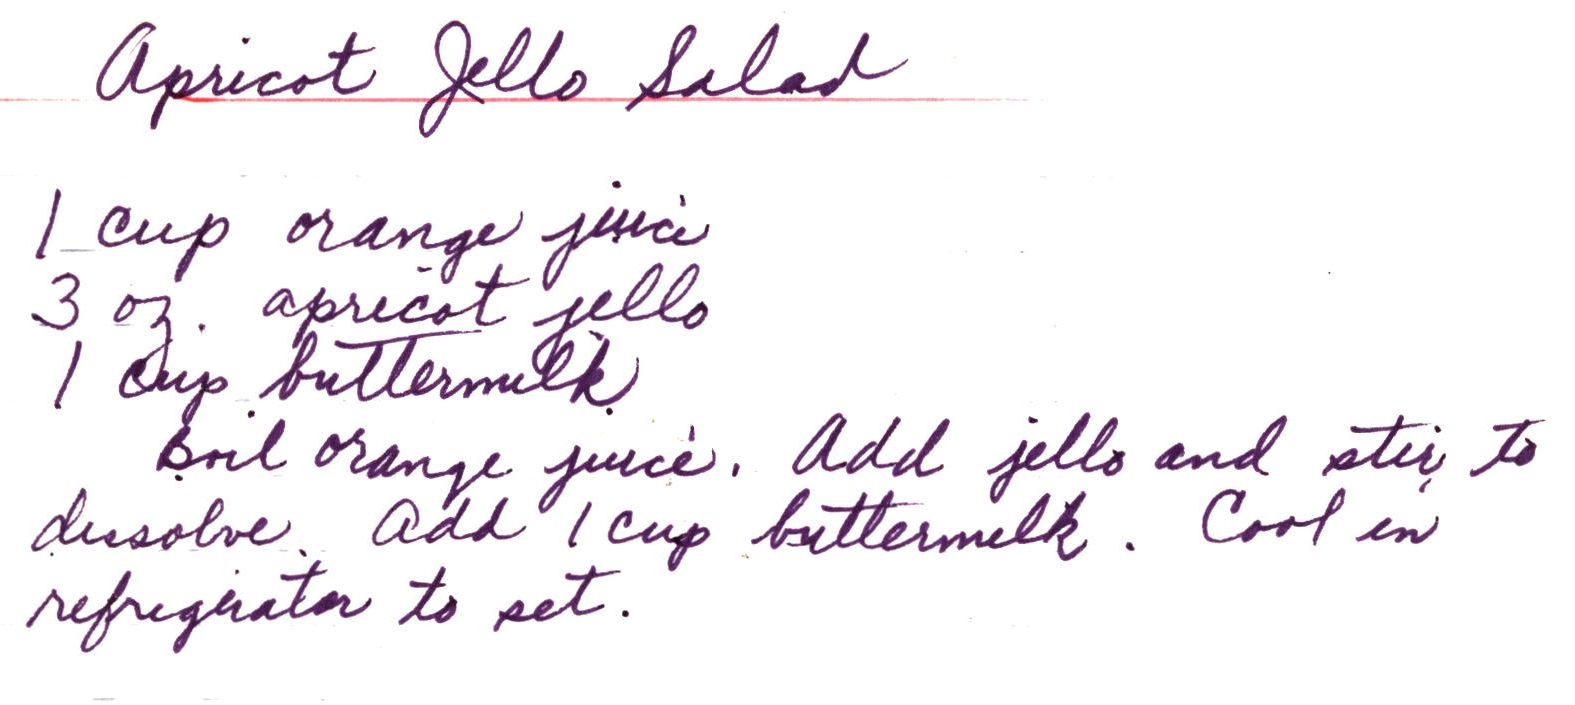 Apricot Jello Salad
1 cup orange juice
3 oz. apricot jello
1 cup buttermilk
Boil orange juice. Add jello and stir to
dissolve. Add 1 cup buttermilk. Cool in
refrigerator to set.